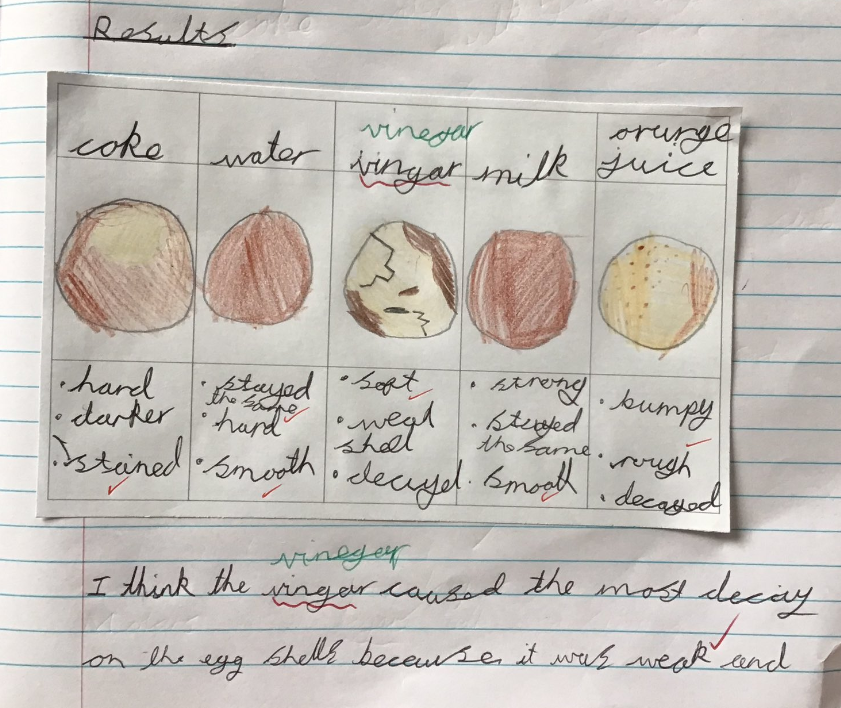 Results
coke
water
vinegar
vingar
milk
orunge
juice
• hard
• darker
• stained
• stayed
the same
• hard
• smooth
• soft
• weak
shell
• decayed
• strong
• stayed
the same
• smooth
• bumpy
• rough
• decayed
vinegar
I think the vingar caused the most decay
on the egg shells because it was weak and